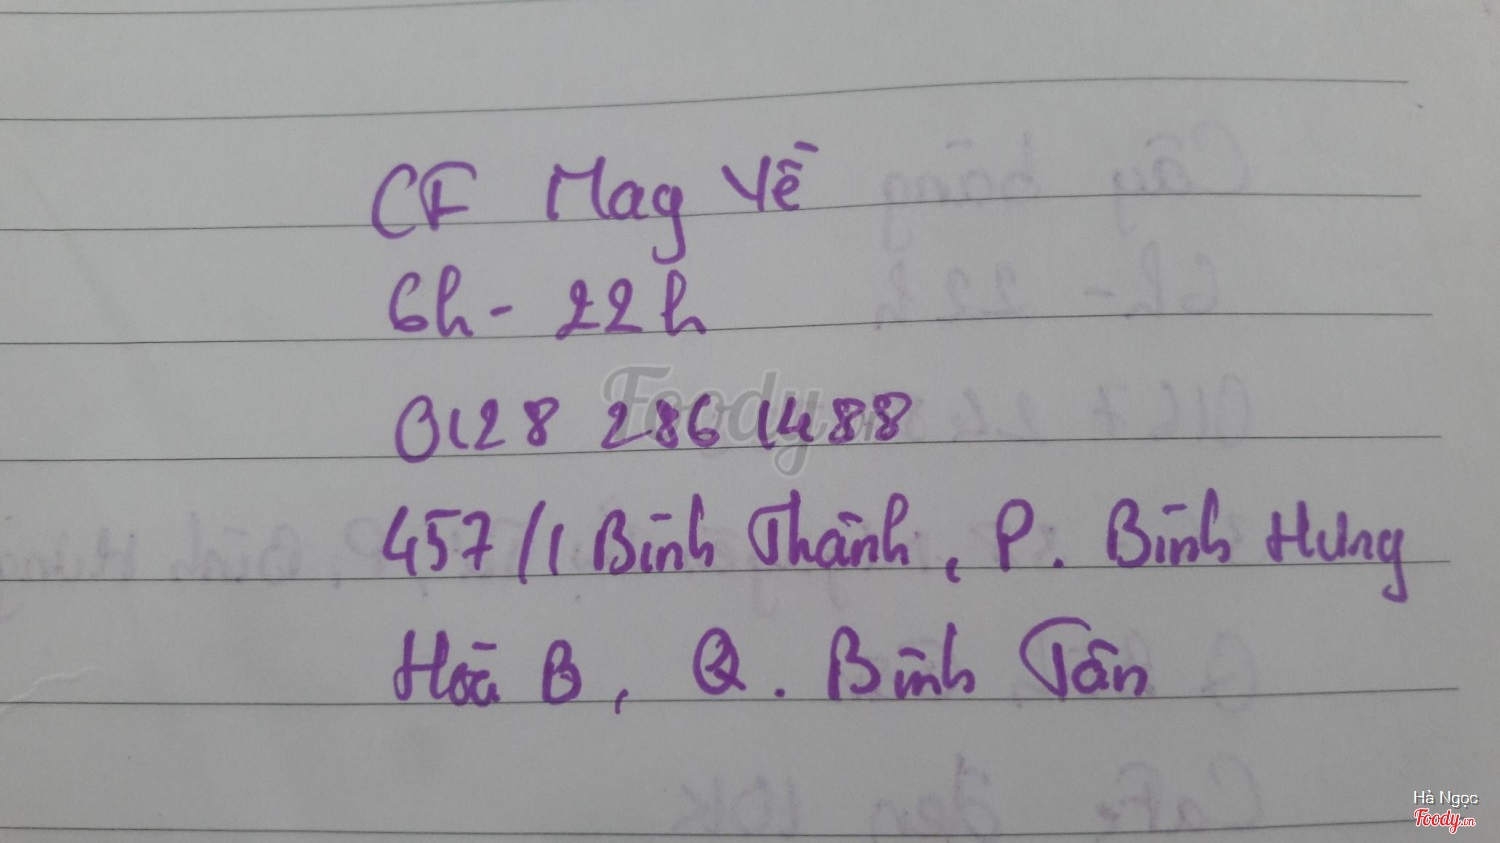 CF Mag Về
6h - 22h
0128 286 1488
457/1 Bình Thành, P. Bình Hưng
Hoà B, Q. Bình Tân
Foody.vn
Hà Ngọc
Foody.vn